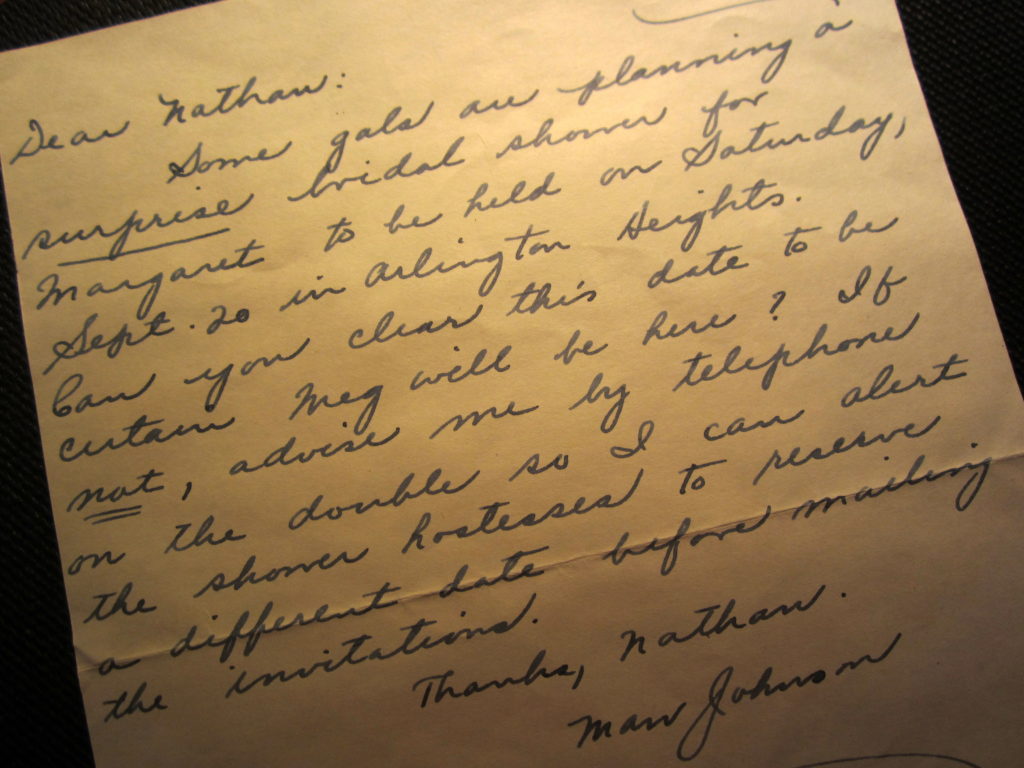 Dear Nathan:
Some gals are planning a
surprise bridal shower for
Margaret to be held on Saturday,
Sept. 20 in Arlington Heights.
Can you clear this date to be
certain Meg will be here? If
not, advise me by telephone
on the double so I can alert
the shower hostesses to reserve
a different date before mailing
the invitations.
Thanks, Nathan.
Johnson